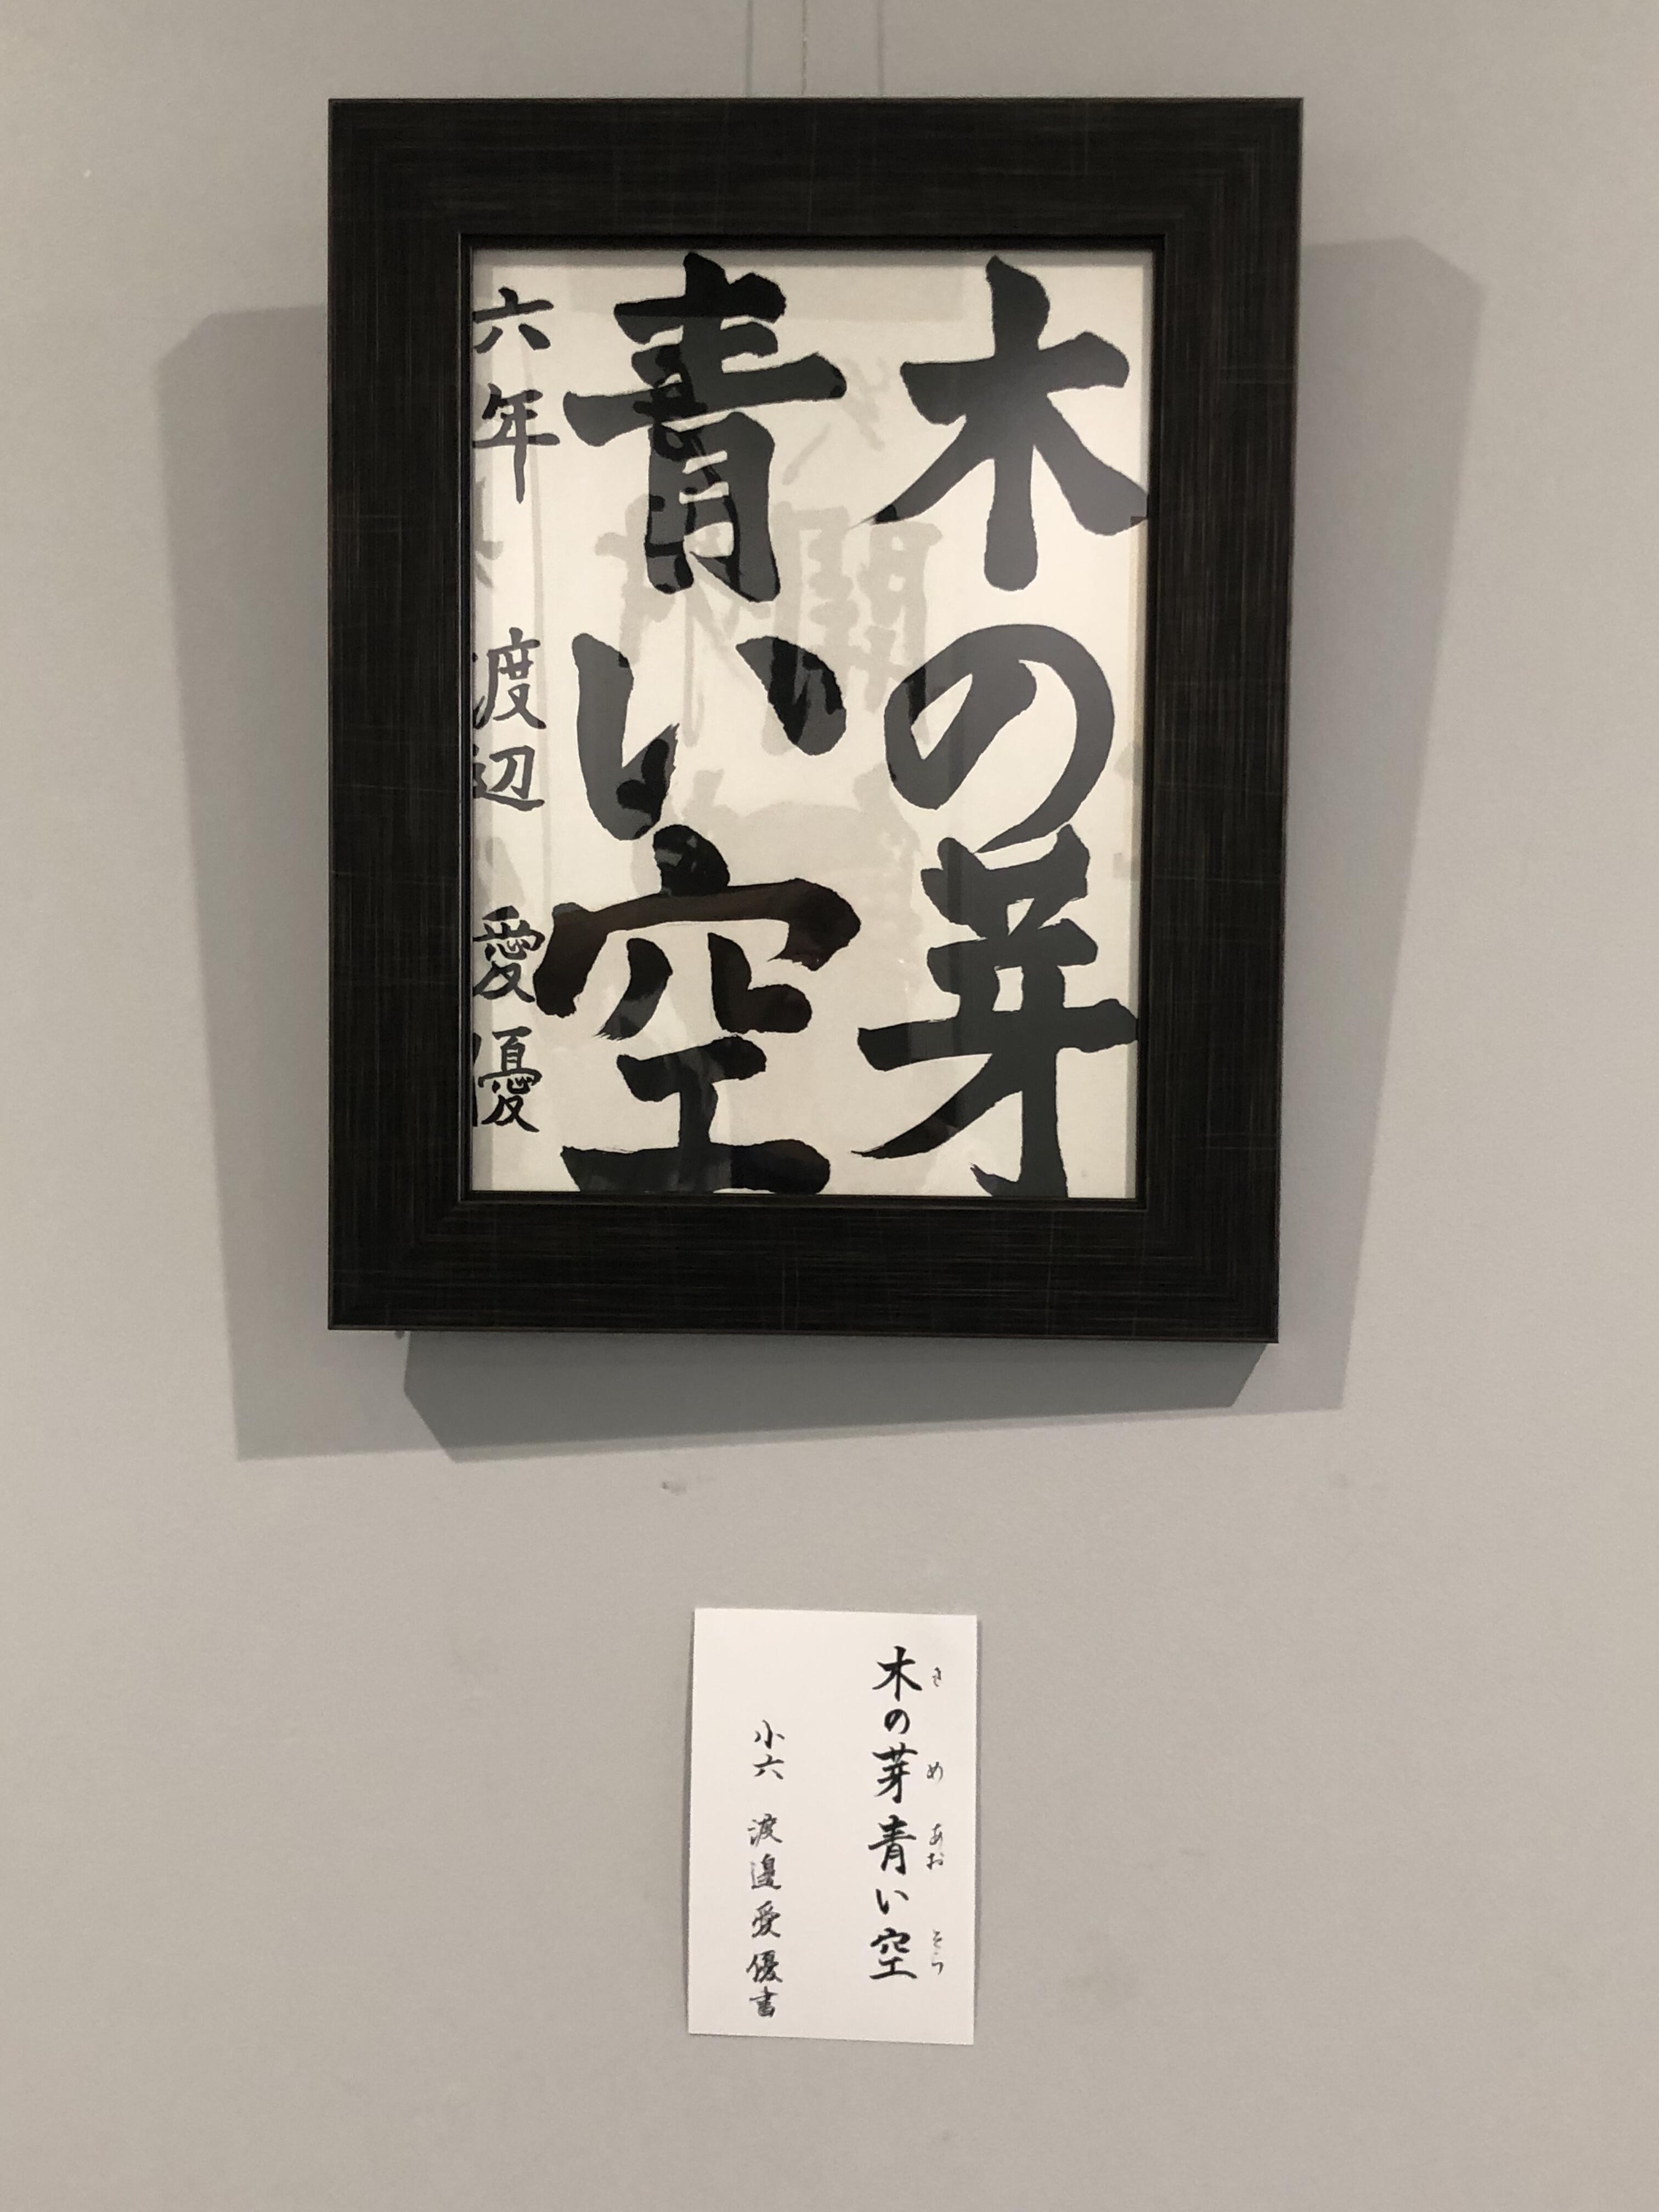 木の芽
青い空
六年 渡辺 愛優
木の芽青い空
き め あお そら
小六 渡邉愛優書